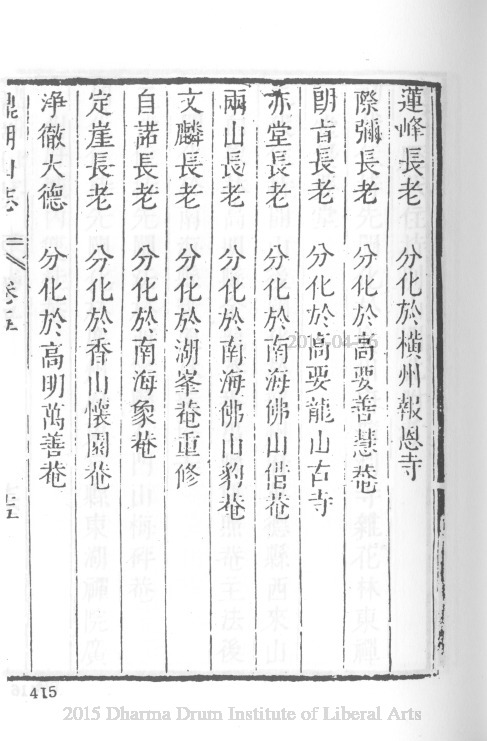 蓮峰長老 分化於橫州報恩寺
際彌長老 分化於高要善慧菴
朗音長老 分化於高要龍山古寺
亦堂長老 分化於南海佛山借菴
兩山長老 分化於南海佛山豹菴
文麟長老 分化於湖峯菴重修
自諾長老 分化於南海象菴
定崖長老 分化於香山懷園菴
淨徹大德 分化於高明萬善菴
鼎湖山志 卷五
415
2015 Dharma Drum Institute of Liberal Arts